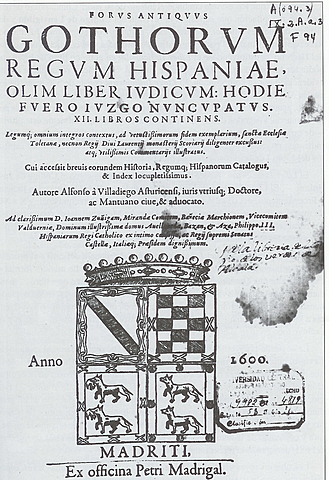 A (094.3)
IX.2.A.a.3
F 94
FORVS ANTIQVVS
GOTHORVM
REGVM HISPANIAE,
OLIM LIBER IVDICVM: HODIE
FVERO IVZGO NVNCVPATVS.
XII. LIBROS CONTINENS.
Legumq; omnium integros contextus, ad vetustissimorum fidem exemplarium, sanctæ Ecclesiæ
Toletanæ, necnon Regij Diui Laurentij monasterij Scorialis diligenter excussus:
atq; vtilissimis Commentarijs illustratus.
Cui accessit breuis eorundem Historia, Regumq; Hispanorum Catalogus,
& Index locupletissimus.
Autore Alfonso à Villadiego Asturicensi, iuris vtriusq; Doctore,
ac Mantuano ciue, & aduocato.
Ad clarissimum D. Ioannem Zuñigam, Miranda Comitem, Bañecia Marchionem, Vicecomitem
Valduernia, Dominum illustrissima domus Auellaneda, Bazan, & Aza, Philippo.III.
Hispaniarum Regi Catholico ex intimo consilijs, ac Regij supremi Senatus
Castella, Italiaq; Præsidem dignissimum.
Anno
1600.
MADRITI,
Ex officina Petri Madrigal.